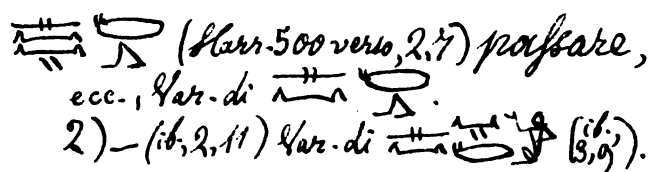 (Harr. 500 verso, 2, 7) passare,
ecc., Var. di .
2) — (ib, 2, 11) Var. di (ib, 3, 9).